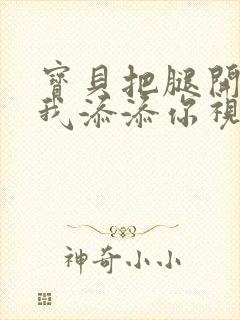 寶貝把腿開
我添添你視
神奇小小